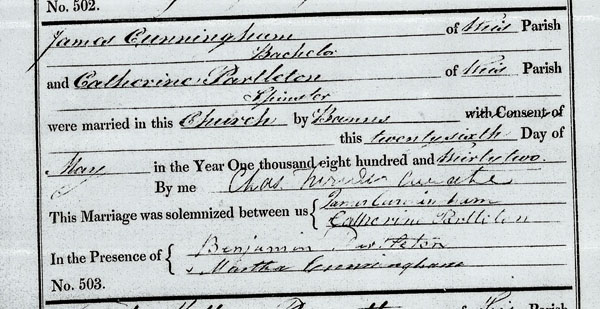 No. 502.
James Cunningham of this Parish
Bachelor
and Catherine Partleton of this Parish
Spinster
were married in this Church by Banns with Consent of
this twenty sixth Day of
May in the Year One thousand eight hundred and thirty two.
By me Chas Curate
This Marriage was solemnized between us { James Cunningham
Catherine Partleton
In the Presence of { Benjamin Partleton
Martha Cunningham
No. 503.
of this Parish